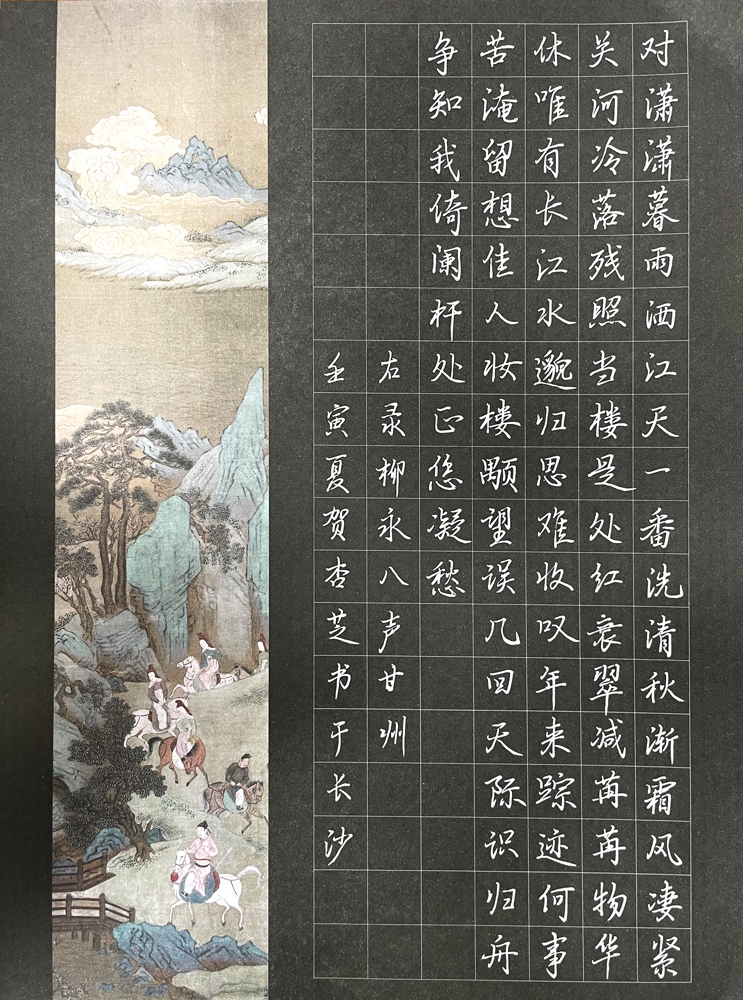 对潇潇暮雨洒江天一番洗清秋渐霜风凄紧
关河冷落残照当楼是处红衰翠减苒苒物华
休唯有长江水邈归思难收叹年来踪迹何事
苦淹留想佳人妆楼颙望误几回天际识归舟
争知我倚阑杆处正恁凝愁
右录柳永八声甘州
壬寅夏贺杏芝书于长沙